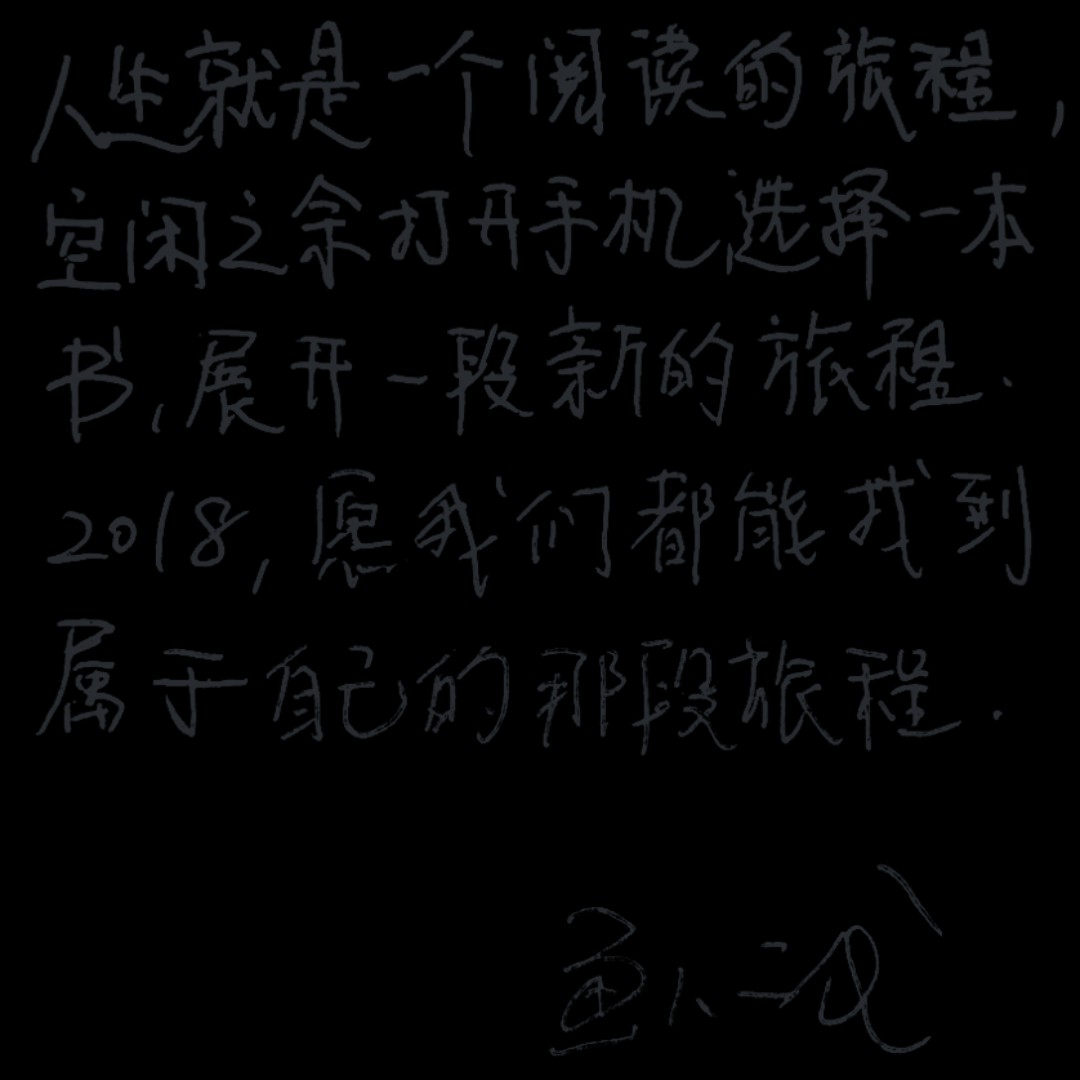 人生就是一个阅读的旅程，
空闲之余打开手机，选择一本
书，展开一段新的旅程.
2018，愿我们都能找到
属于自己的那段旅程.